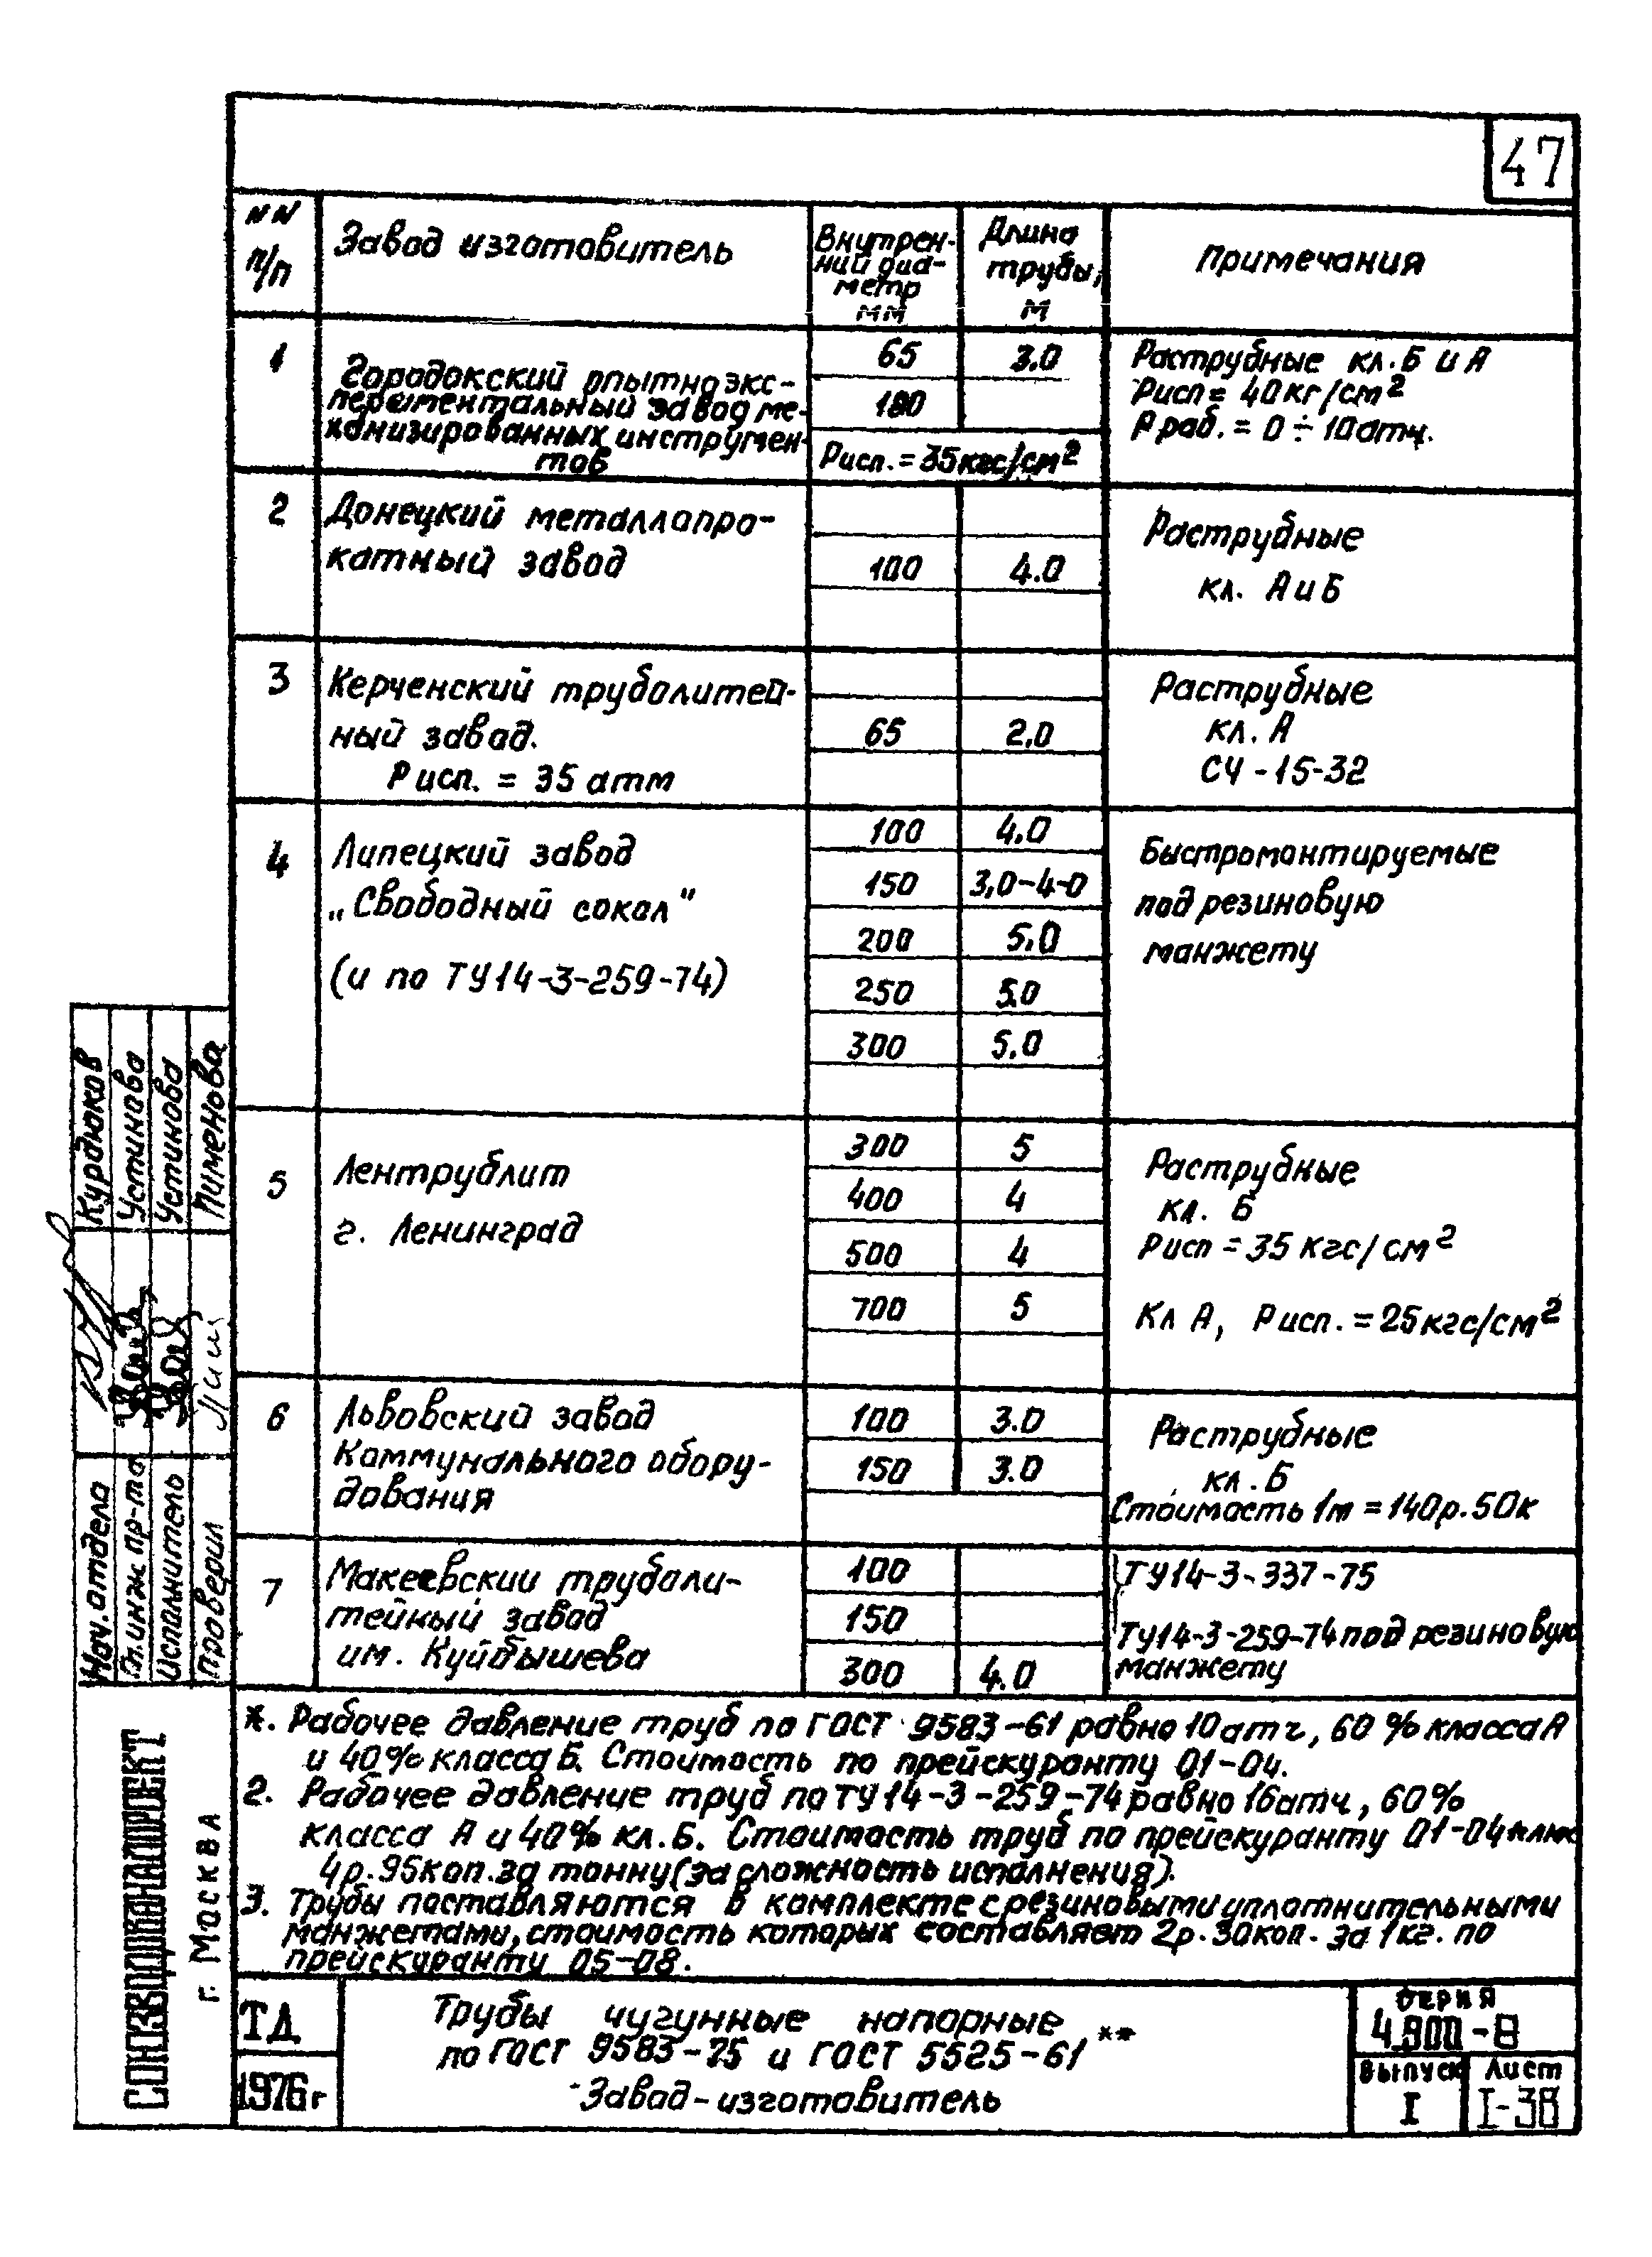 47
NN п/п
Завод изготовитель
Внутрен-
ний диа-
метр
мм
Длина
трубы,
м
Примечания
1
Городокский опытно экс-
периментальный завод ме-
ханизированных инструмен-
тов
65 3.0
100
Рисп. = 35кгс/см²
Раструбные кл. Б и А
Рисп = 40кг/см²
Р раб. = 0 ÷ 10атм.
2
Донецкий металлопро-
катный завод
100 4.0
Раструбные
кл. А и Б
3
Керченский труболитей-
ный завод.
Р исп. = 35 атм
65 2.0
Раструбные
кл. А
СЧ-15-32
4
Липецкий завод
„Свободный сокол"
(и по ТУ14-3-259-74)
100 4.0
150 3,0-4-0
200 5.0
250 5.0
300 5.0
Быстромонтируемые
под резиновую
манжету
5
Лентрублит
г. Ленинград
300 5
400 4
500 4
700 5
Раструбные
кл. Б
Рисп = 35 кгс/см²
Кл А, Р исп. = 25кгс/см²
6
Львовский завод
Коммунального обору-
дования
100 3.0
150 3.0
Раструбные
кл. Б
Стоимость 1т = 140р.50к
7
Макеевский труболи-
тейный завод
им. Куйбышева
100
150
300 4.0
ТУ14-3-337-75
ТУ14-3-259-74 под резиновую
манжету
*. Рабочее давление труб по ГОСТ 9583-61 равно 10атч, 60% класса А
и 40% класса Б. Стоимость по прейскуранту 01-04.
2. Рабочее давление труб по ТУ14-3-259-74 равно 16атч, 60%
класса А и 40% кл. Б. Стоимость труб по прейскуранту 01-04 плюс
4р.95коп.за тонну (за сложность исполнения).
3. Трубы поставляются в комплекте с резиновыми уплотнительными
манжетами, стоимость которых составляет 2р.30коп. за 1кг. по
прейскуранту 05-08.
ТД
1976г
Трубы чугунные напорные
по ГОСТ 9583-75 и ГОСТ 5525-61 **
Завод-изготовитель
Серия
4.900-8
Выпуск
I
Лист
I-38
Курдюков
Устинова
Устинова
Пименова
Нач. отдела
Гл. инж. пр-та
Исполнитель
Проверил
СОЮЗВОДОКАНАЛПРОЕКТ
г. Москва